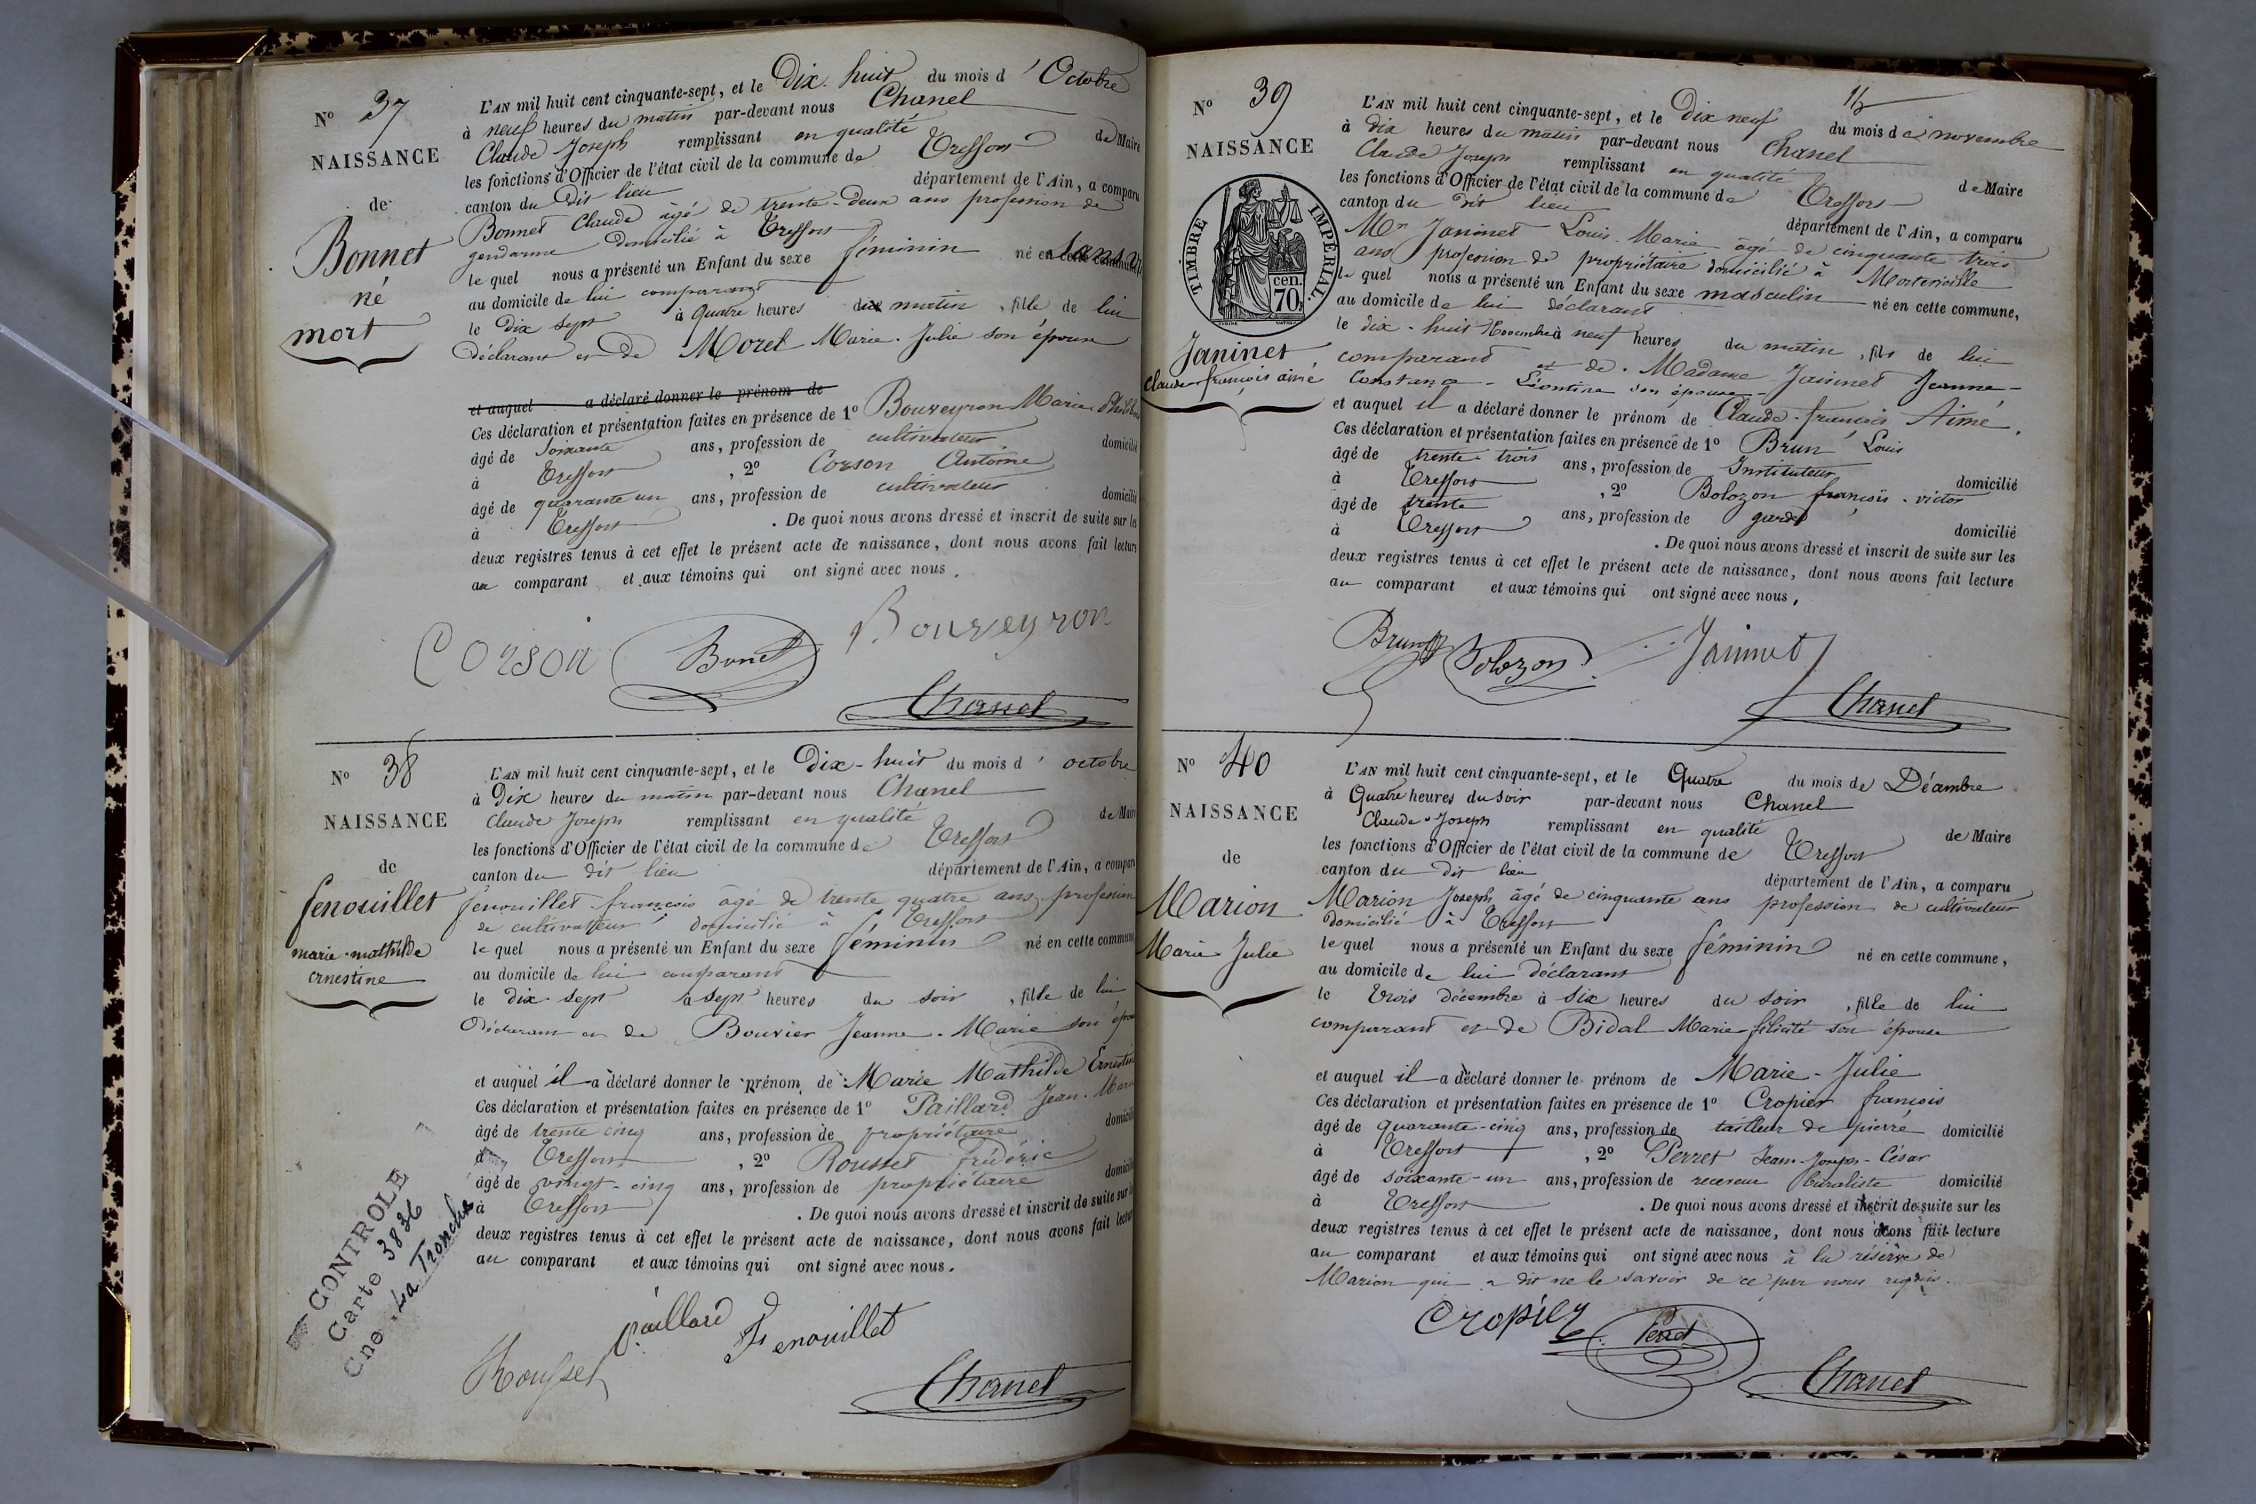 N° 37
NAISSANCE
de
Bonnet
né
mort
L'AN mil huit cent cinquante-sept, et le Dix huit du mois d' Octobre
à neuf heures du matin par-devant nous Chanel
Claude Joseph remplissant en qualité de Maire
les fonctions d'Officier de l'état civil de la commune de Treffort
canton du dit lieu département de l'Ain, a comparu
Bonnet Claude âgé de trente-deux ans profession de
gendarme domicilié à Treffort
le quel nous a présenté un Enfant du sexe féminin né en cette commune sans vie
au domicile de lui comparant
le dix sept à quatre heures du matin, fille de lui
déclarant et de Morel Marie-Julie son épouse
et auquel a déclaré donner le prénom de
Ces déclaration et présentation faites en présence de 1° Bouveyron Marie
âgé de soixante ans, profession de cultivateur domicilié
à Treffort, 2° Corson Antoine
âgé de quarante un ans, profession de cultivateur domicilié
à Treffort. De quoi nous avons dressé et inscrit de suite sur les
deux registres tenus à cet effet le présent acte de naissance, dont nous avons fait lecture
au comparant et aux témoins qui ont signé avec nous.
Bouveyron
Corson Bonet
Chanel
N° 38
NAISSANCE
de
fenouillet
marie-mathilde
ernestine
L'AN mil huit cent cinquante-sept, et le Dix-huit du mois d' octobre
à Dix heures du matin par-devant nous Chanel
Claude Joseph remplissant en qualité de Maire
les fonctions d'Officier de l'état civil de la commune de Treffort
canton du dit lieu département de l'Ain, a comparu
fenouillet françois âgé de trente quatre ans profession
de cultivateur domicilié à Treffort
le quel nous a présenté un Enfant du sexe féminin né en cette commune
au domicile de lui comparant
le dix-sept à sept heures du soir, fille de lui
déclarant et de Bouvier Jeanne-Marie son épouse
et auquel il a déclaré donner le prénom de Marie Mathilde Ernestine
Ces déclaration et présentation faites en présence de 1° Paillard Jean-Marie
âgé de trente cinq ans, profession de propriétaire domicilié
à Treffort, 2° Rousset frédéric
âgé de vingt-cinq ans, profession de propriétaire domicilié
à Treffort. De quoi nous avons dressé et inscrit de suite sur les
deux registres tenus à cet effet le présent acte de naissance, dont nous avons fait lecture
au comparant et aux témoins qui ont signé avec nous.
CONTROLE
Carte 3836
Cne La Tronche
Paillard Fenouillet
Rousset
Chanel
N° 39
NAISSANCE
TIMBRE IMPERIAL.
70 cen.
Janinet
Claude-françois aimé
L'AN mil huit cent cinquante-sept, et le Dix neuf du mois de novembre
à dix heures du matin par-devant nous Chanel
Claude Joseph remplissant en qualité de Maire
les fonctions d'Officier de l'état civil de la commune de Treffort
canton du dit lieu département de l'Ain, a comparu
Mr Janinet Louis-Marie âgé de cinquante trois
ans profession de propriétaire domicilié à
le quel nous a présenté un Enfant du sexe masculin né en cette commune,
au domicile de lui déclarant
le dix-huit Novembre à neuf heures du matin, fils de lui
comparant et de Madame Janinet Jeanne-
Constance-Léontine son épouse
et auquel il a déclaré donner le prénom de Claude-françois Aimé.
Ces déclaration et présentation faites en présence de 1° Brun Louis
âgé de trente trois ans, profession de Instituteur domicilié
à Treffort, 2° Bolozon françois-victor
âgé de trente ans, profession de garde domicilié
à Treffort. De quoi nous avons dressé et inscrit de suite sur les
deux registres tenus à cet effet le présent acte de naissance, dont nous avons fait lecture
au comparant et aux témoins qui ont signé avec nous,
Brun Bolozon Janinet
Chanel
N° 40
NAISSANCE
de
Marion
Marie-Julie
L'AN mil huit cent cinquante-sept, et le Quatre du mois de Décembre
à Quatre heures du soir par-devant nous Chanel
Claude-Joseph remplissant en qualité de Maire
les fonctions d'Officier de l'état civil de la commune de Treffort
canton du dit lieu département de l'Ain, a comparu
Marion Joseph âgé de cinquante ans profession de cultivateur
domicilié à Treffort
le quel nous a présenté un Enfant du sexe féminin né en cette commune,
au domicile de lui déclarant
le trois décembre à six heures du soir, fille de lui
comparant et de Bidal Marie-félicité son épouse
et auquel il a déclaré donner le prénom de Marie-Julie
Ces déclaration et présentation faites en présence de 1° Cropier françois
âgé de quarante-cinq ans, profession de tailleur de pierre domicilié
à Treffort, 2° Perret Jean-Joseph-César
âgé de soixante-un ans, profession de receveur buraliste domicilié
à Treffort. De quoi nous avons dressé et inscrit de suite sur les
deux registres tenus à cet effet le présent acte de naissance, dont nous avons fait lecture
au comparant et aux témoins qui ont signé avec nous à la réserve de
Marion qui a dit ne le savoir de ce par nous requis.
Cropier Perret
Chanel